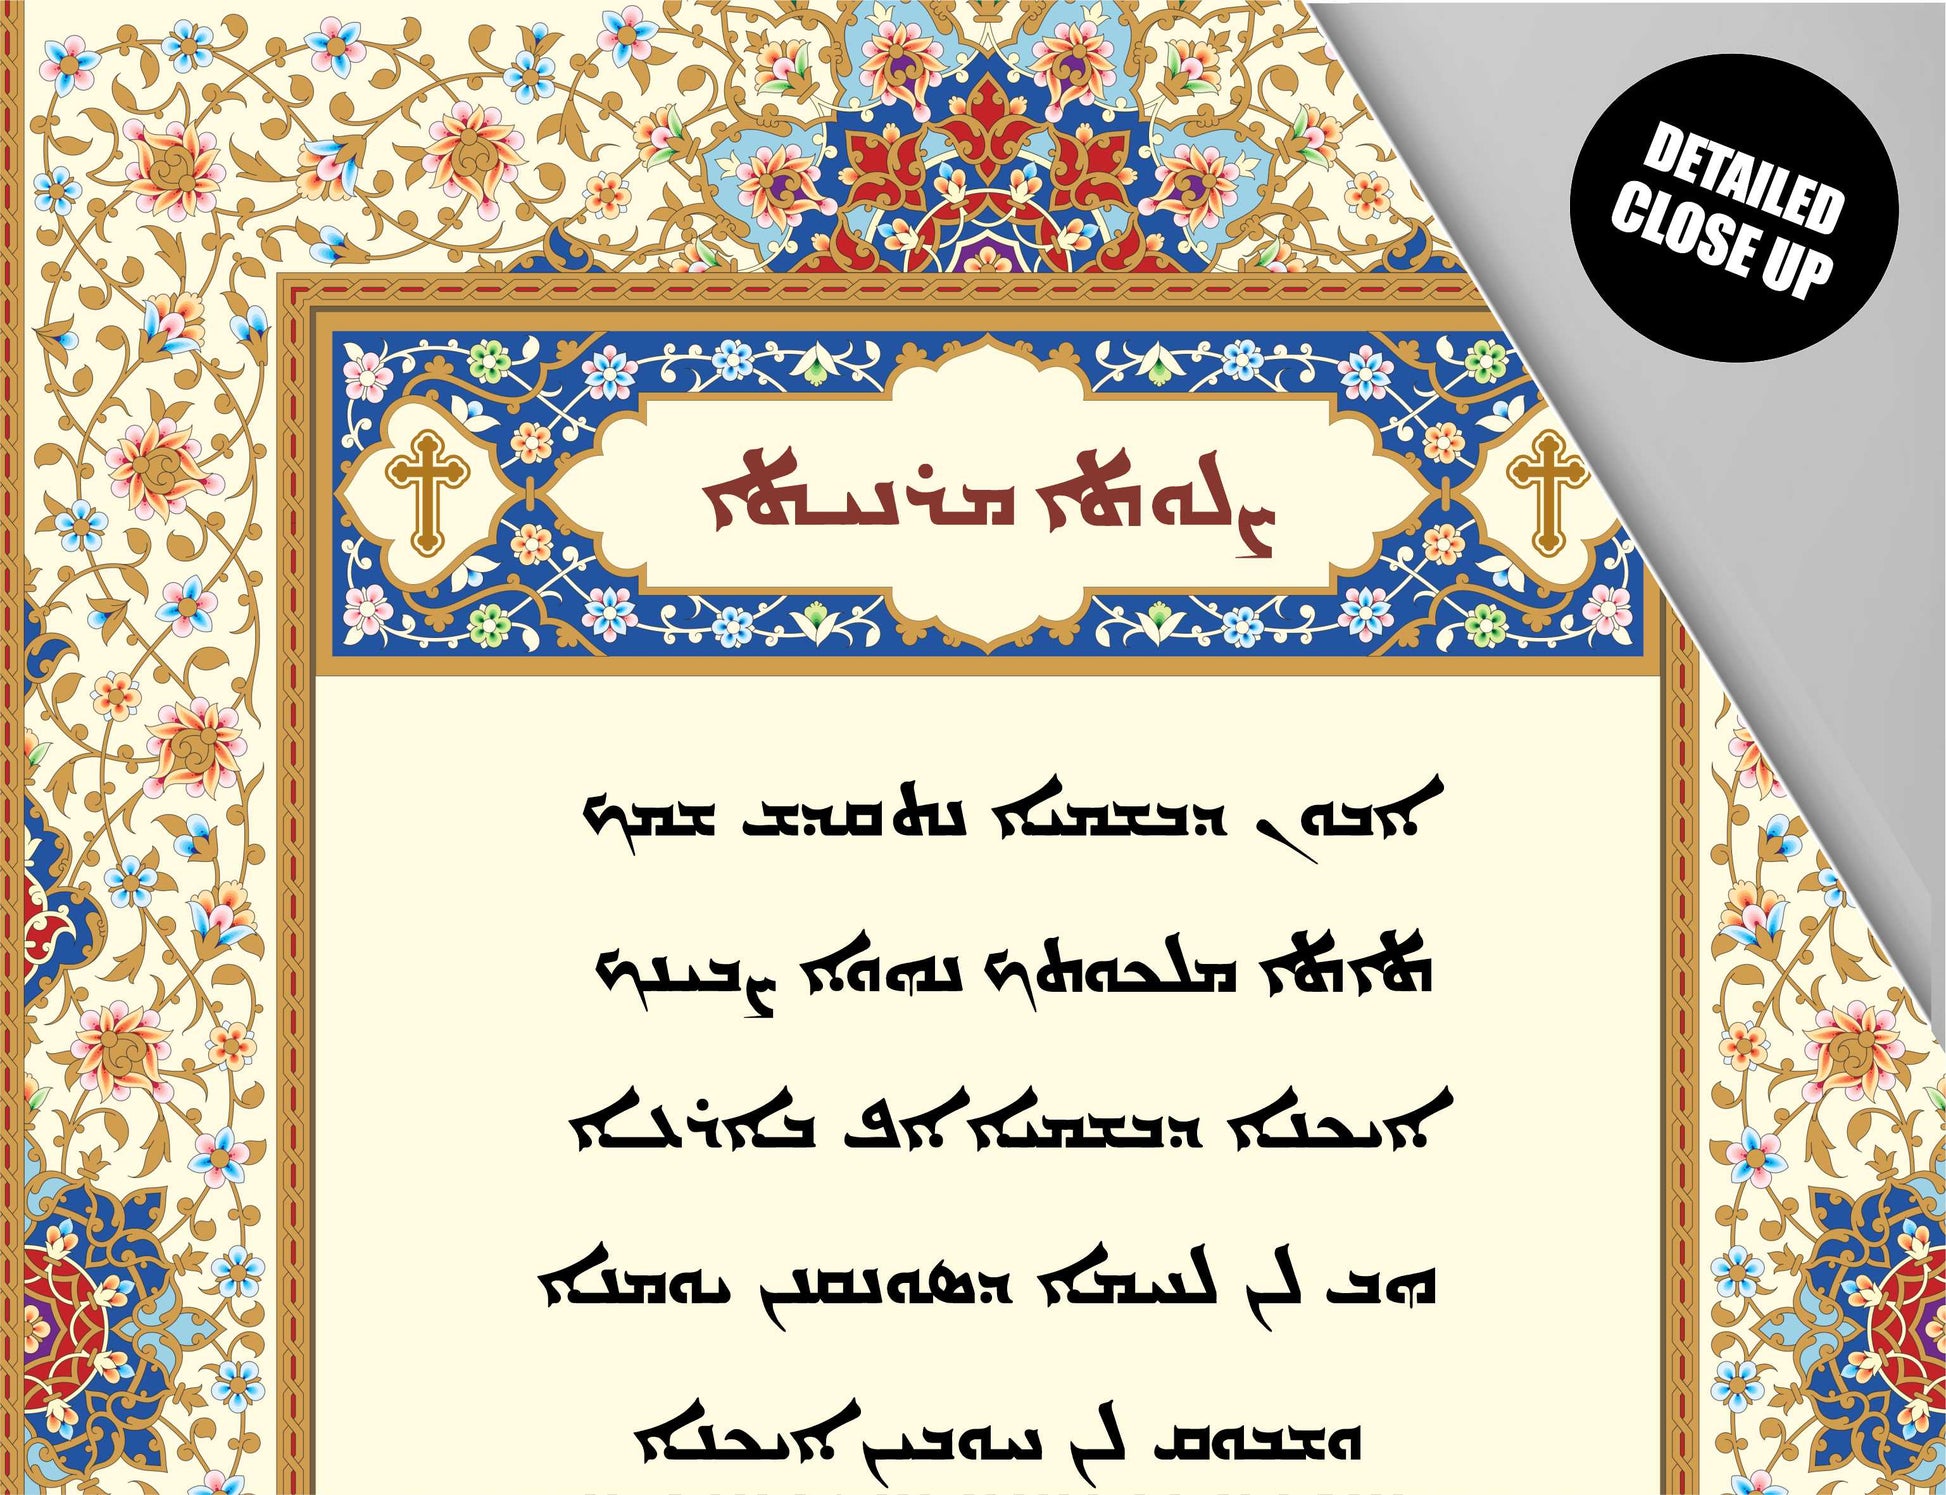 DETAILED
CLOSE UP
ܨܠܘܬܐ ܡܪܢܝܬܐ
ܐܒܘܢ ܕܒܫܡܝܐ ܢܬܩܕܫ ܫܡܟ
ܬܐܬܐ ܡܠܟܘܬܟ ܢܗܘܐ ܨܒܝܢܟ
ܐܝܟܢܐ ܕܒܫܡܝܐ ܐܦ ܒܐܪܥܐ
ܗܒ ܠܢ ܠܚܡܐ ܕܣܘܢܩܢܢ ܝܘܡܢܐ
ܘܫܒܘܩ ܠܢ ܚܘܒܝܢ ܐܝܟܢܐ